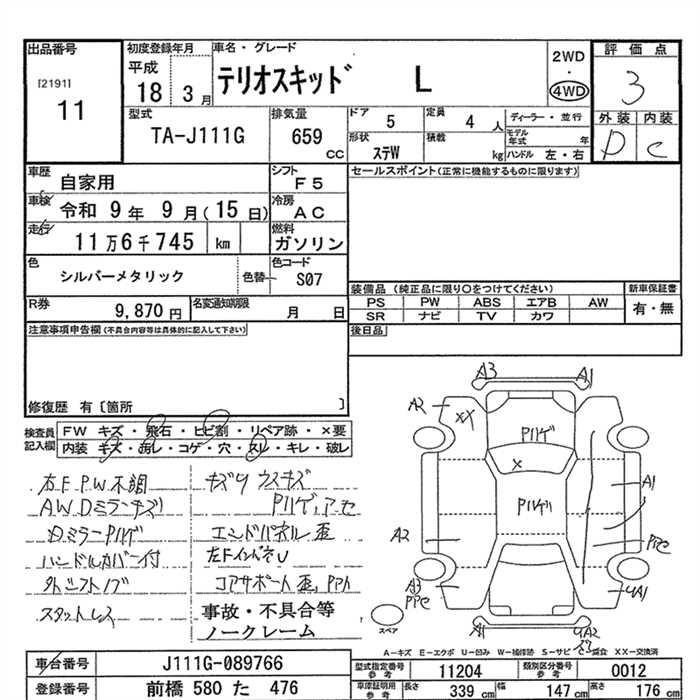 出品番号
[2191]
11
初度登録年月
平成
18 3月
車名・グレード
テリオスキッド L
2WD
・
4WD
評価点
3
外装 内装
D C
型式
TA-J111G
排気量
659
CC
ドア 5
定員 4 人
ディーラー・並行
形状 ステW
積載 kg
モデル年式 年
ハンドル 左・右
車歴 自家用
シフト F5
セールスポイント(正常に機能するものに限ります)
車検 令和 9年 9月(15日)
冷房 AC
走行 11万6千745 km
燃料 ガソリン
色 シルバーメタリック
色替
色コード S07
装備品 (純正品に限り○をつけてください)
新車保証書
PS PW ABS エアB AW
有・無
SR ナビ TV カワ
R券 9,870円
名変通知期限 月 日
後日品
注意事項申告欄(不具合内容等は具体的に記入して下さい)
修復歴 有〔箇所 〕
検査員記入欄
FW キズ・飛石・ヒビ割・リペア跡・×要
内装 キズ・汚レ・コゲ・穴・スレ・キレ・破レ
右F.P.W不調
A.W.Dミラーキズ
ハンドルカバー付
外シフトノブ
スタットレス
キズ ウスキズ
Pハゲ,アセ
エンドパネル歪
左FインドネU
コアサポート歪,PPハ
事故・不具合等
ノークレーム
A3
A1
A2
XX
Pハゲ
×
Pハゲ
A1
A2
PPe
A3
PPe
UA1
A1
UA2
スペア
A-キズ E-エクボ U-凹み W-補修跡 S-サビ C-腐食 XX-交換済
車台番号 J111G-089766
登録番号 前橋 580 た 476
型式指定番号 参考 11204
類別区分番号 参考 0012
車庫証明用 参考 長さ 339 cm 幅 147 cm 高さ 176 cm